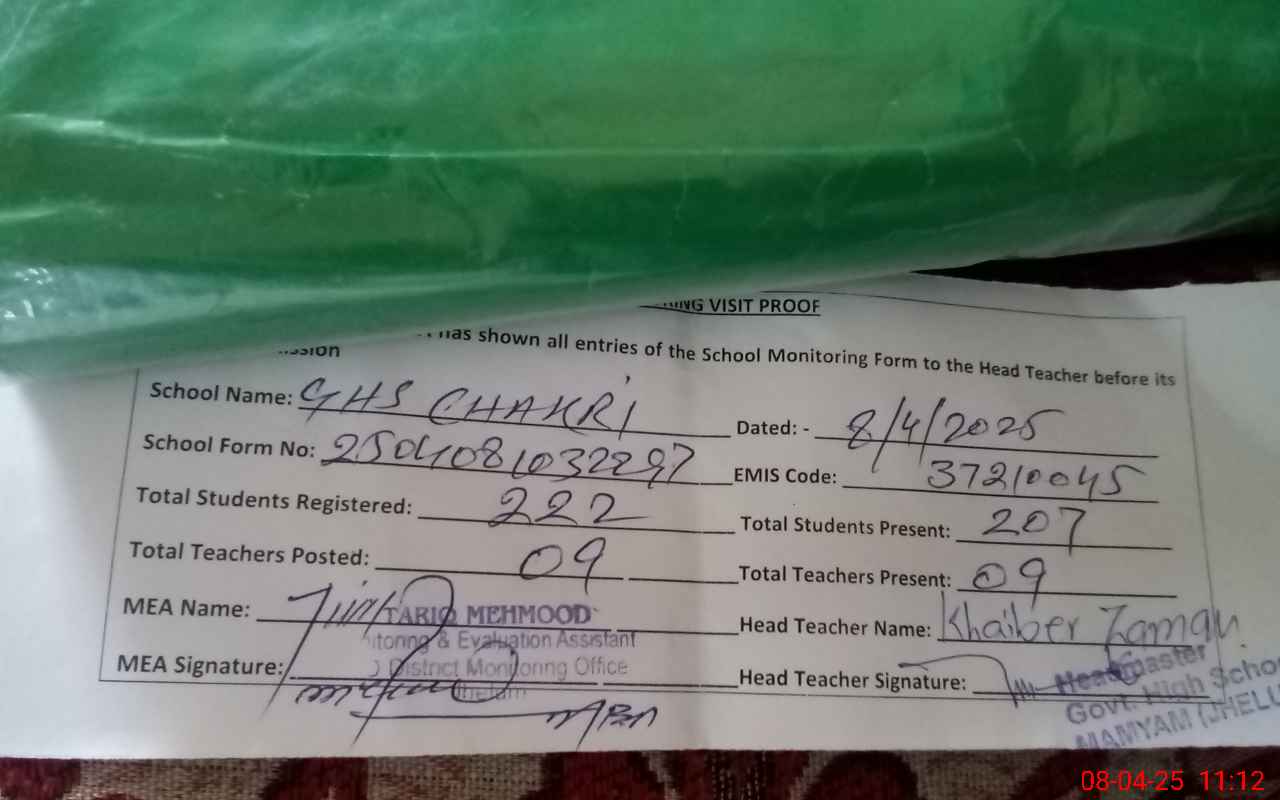 VISIT PROOF
has shown all entries of the School Monitoring Form to the Head Teacher before its
School Name: GHS CHAKRI Dated: - 8/4/2025
School Form No: 2504081032297 EMIS Code: 37210045
Total Students Registered: 222 Total Students Present: 207
Total Teachers Posted: 09 Total Teachers Present: 09
MEA Name: TARIQ MEHMOOD Head Teacher Name: Khaiber Zaman
& Evaluation Assistant
MEA Signature: District Monitoring Office Head Teacher Signature: Headmaster
Govt. High
MAMYAM
08-04-25 11:12